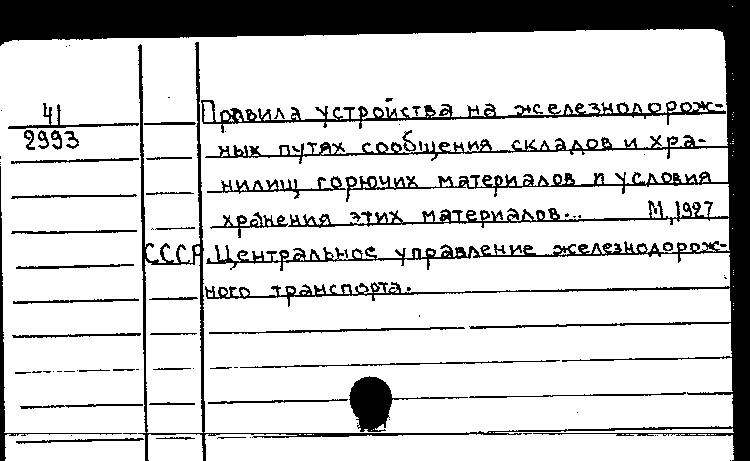 41
2993
Правила устройства на железнодорож-
ных путях сообщения складов и хра-
нилищ горючих материалов и условия
хранения этих материалов... М, 1927
СССР. Центральное управление железнодорож-
ного транспорта.